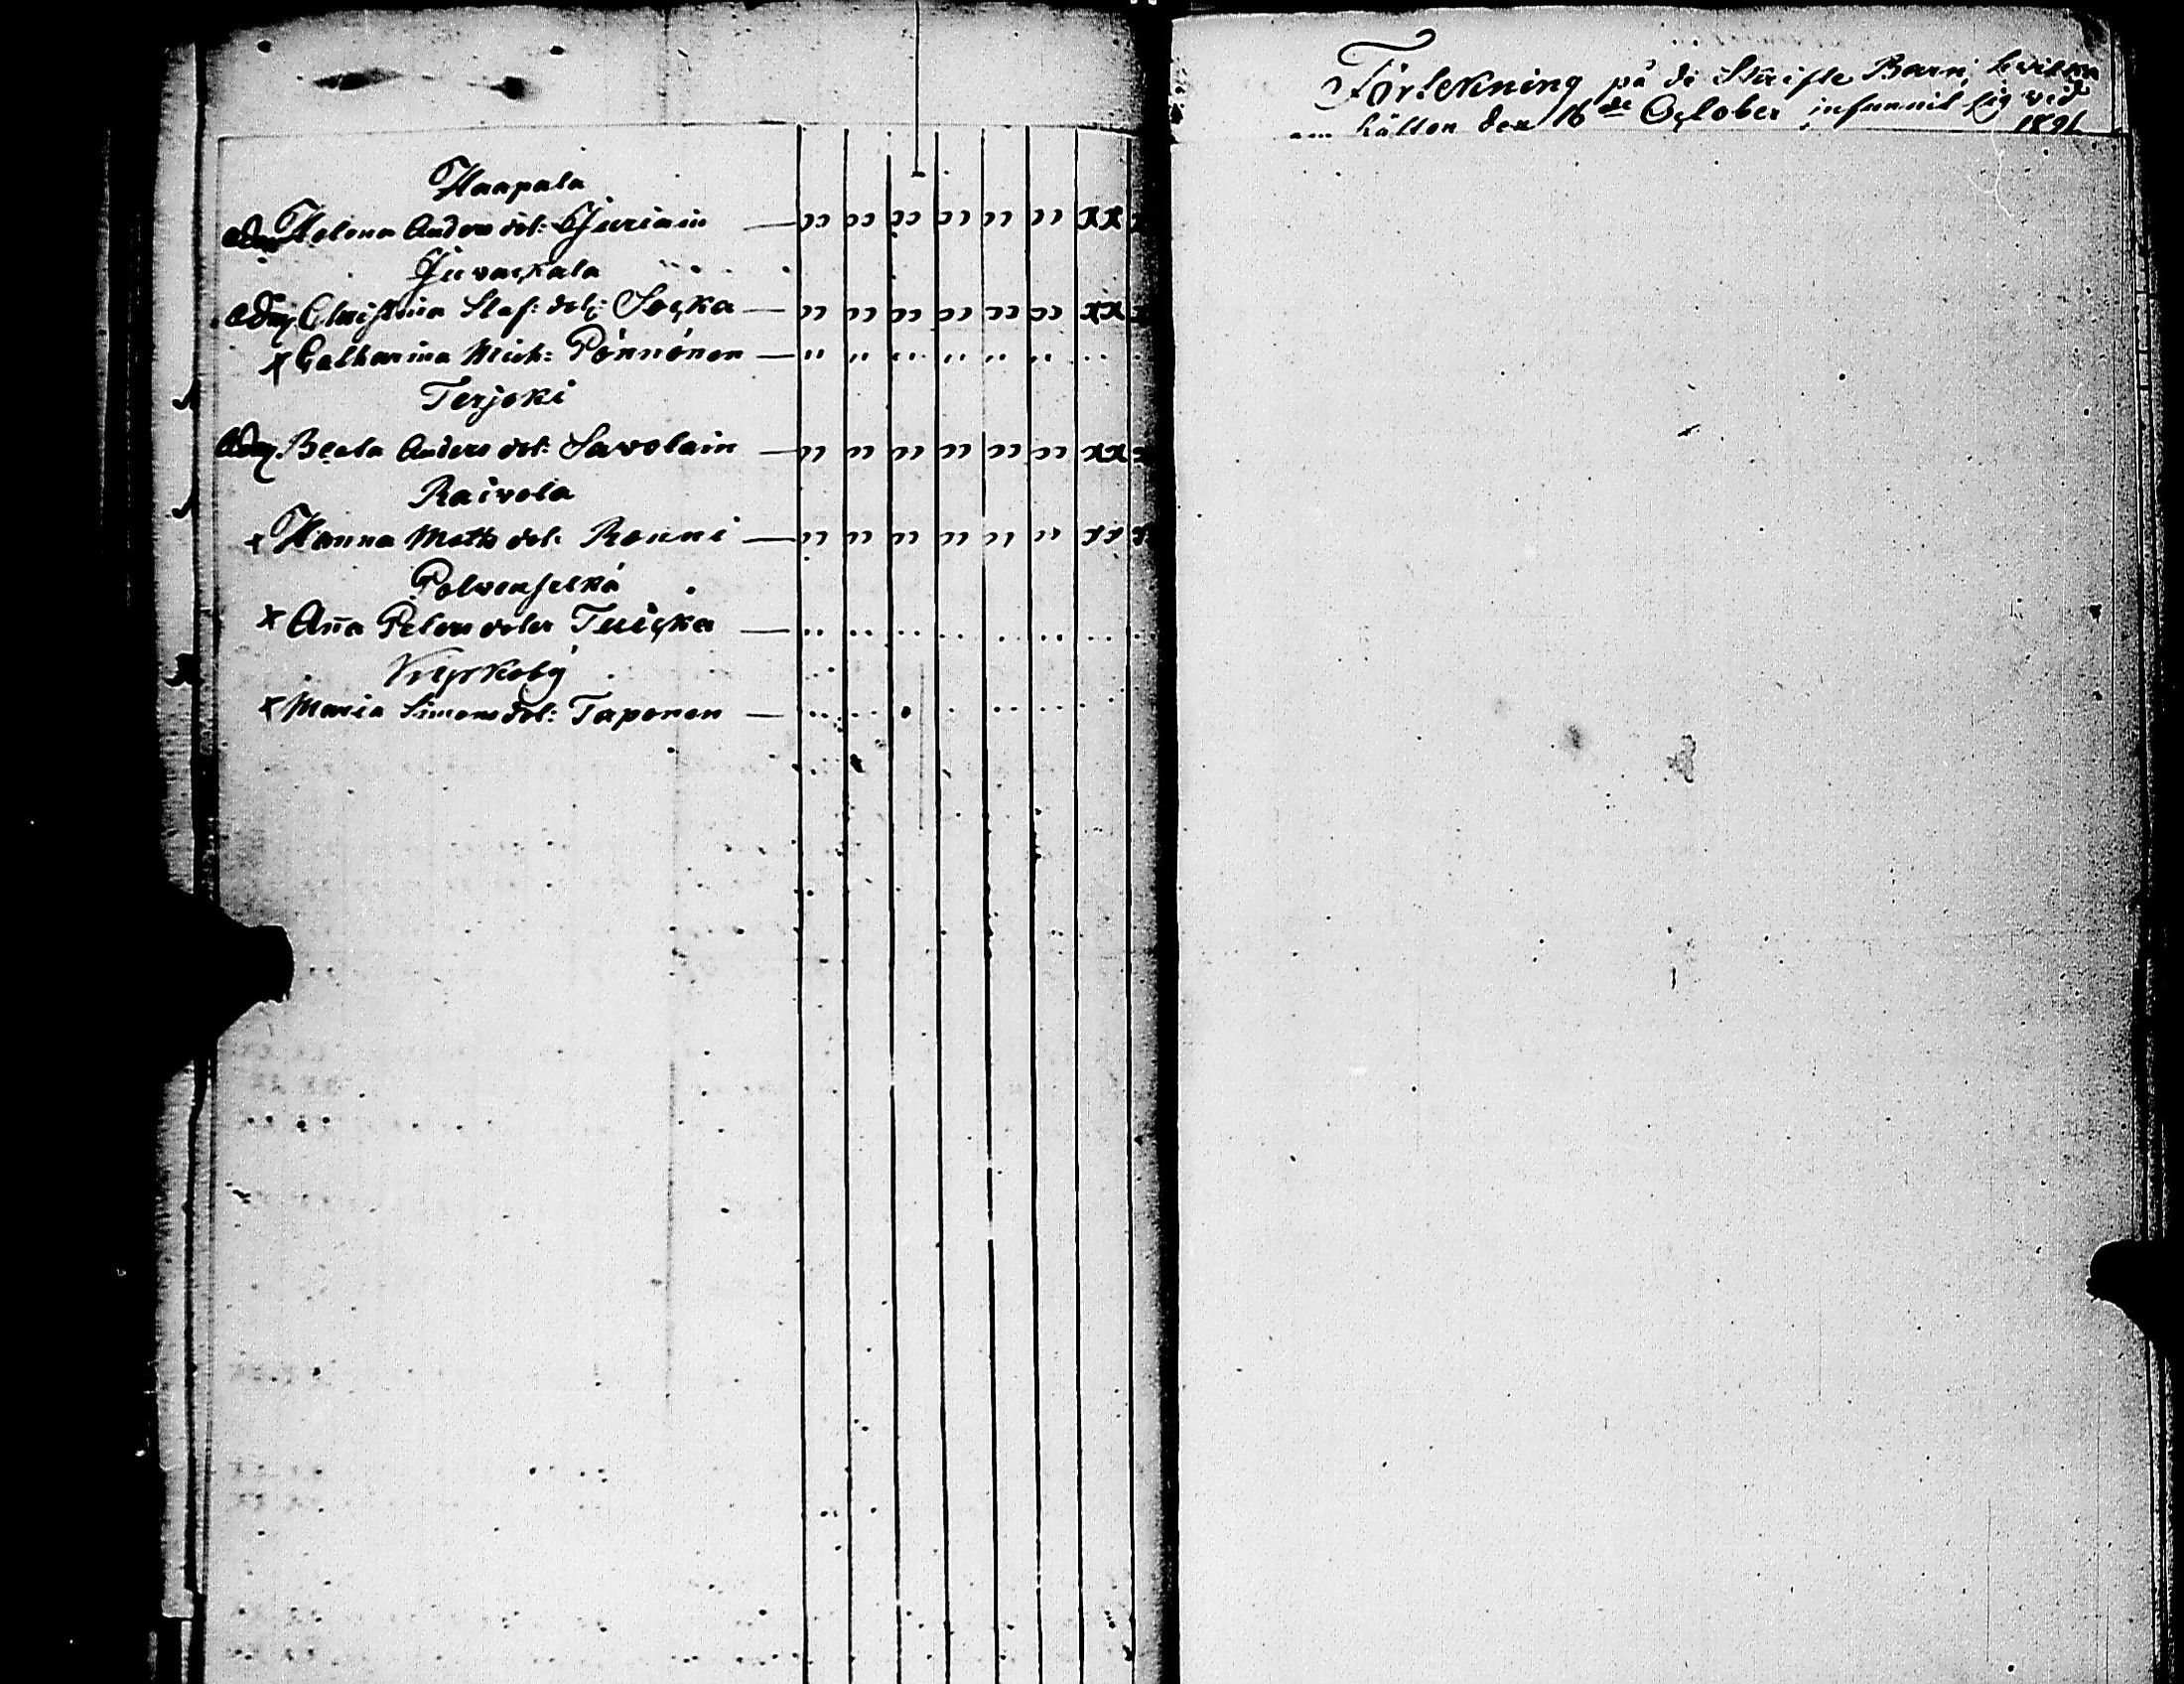 Haapala
Adm Helena Anders dot: Juriain
Juvaskala
Adm Christina Staf: dot: Soçka
x Catharina Mich: Pönnönen
Terjoki
Adm Beata Anders dot: Savolain
Raivola
x Hanna Matts dot: Ronni
Polvenselkä
x Aña Peters doter Tuiçka
Kyrkoby
x Maria Simons dot: Taponen
Förtekning på de Skrifte Barn, hvilka
hållen den 16de October infunnit sig vid